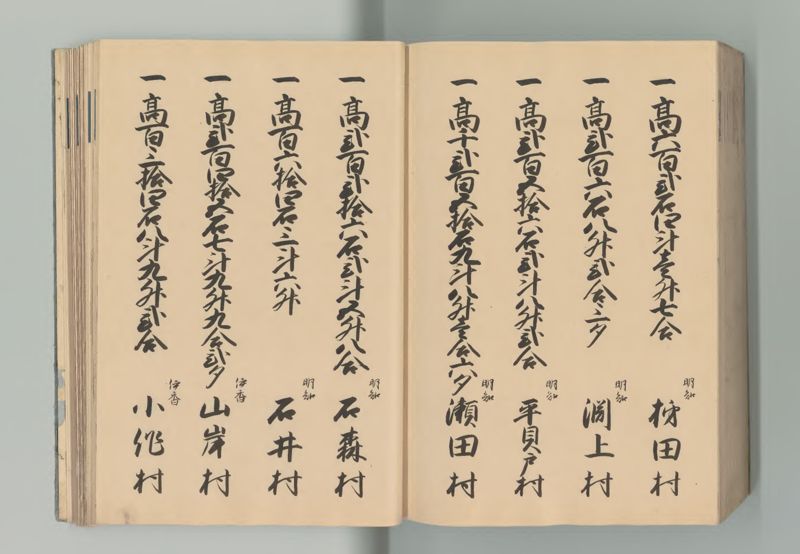 一高六百弐石四斗壱升七合 明知 栃田村
一高弐百六石八升弐合三夕 明知 渕上村
一高弐百五拾六石弐斗八升弐合 明知 平貝戸村
一高千弐百五拾石九斗八升壱合六夕 明知 瀬田村
一高弐百弐拾六石弐斗五升八合 明知 石森村
一高百六拾四石三斗六升 明知 石井村
一高弐百四拾五石七斗九升九合弐夕 伊香 山岸村
一高百三拾四石八斗九升弐合 伊香 小作村